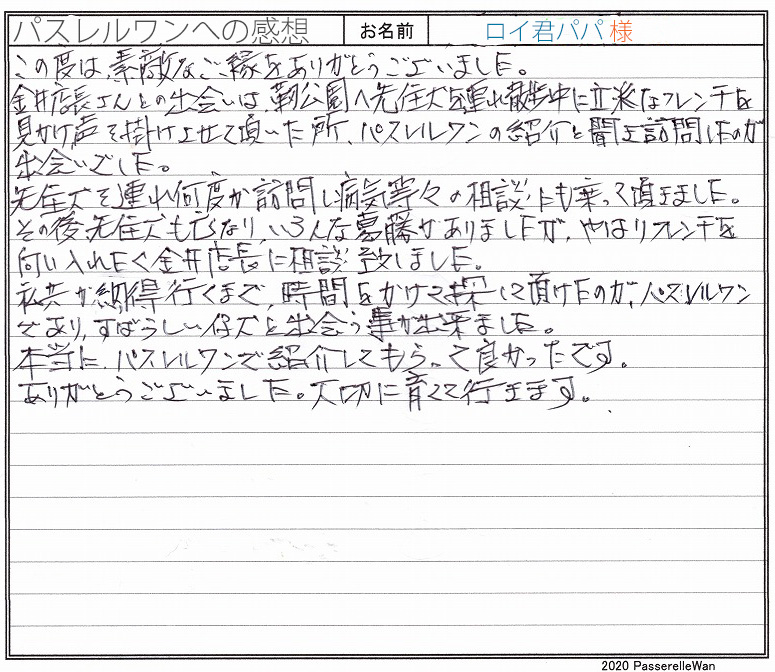 パスレルワンへの感想 お名前 ロイ君パパ 様
この度は、素敵なご縁をありがとうございました。
金井店長さんとの出会いは、靭公園へ先住犬を連れ散歩中に立派なフレンチを
見かけ声を掛けさせて頂いた所、パスレルワンの紹介と聞き訪問したのが
出会いでした。
先住犬を連れ何度か訪問し病気等々の相談にも乗って頂きました。
その後先住犬も亡くなり、いろんな葛藤がありましたが、やはりフレンチを
向い入れたく金井店長に相談致しました。
私共が納得行くまで、時間をかけて探して頂けたのが、パスレルワン
であり、すばらしい仔犬と出会う事が出来ました。
本当に、パスレルワンで紹介してもらって良かったです。
ありがとうございました。大切に育てて行きます。
2020 PasserelleWan